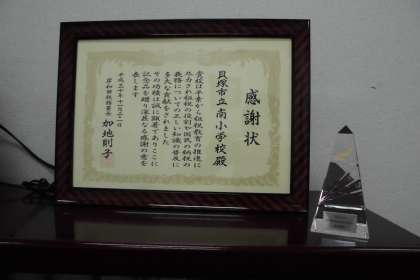 感謝状
貝塚市立南小学校殿
貴校は平素から租税教育の推進に
尽力され租税の役割や国民の納税の
義務についての正しい知識の普及に
多大な貢献をされました
その功績は誠に顕著でありここに
記念品を贈り深甚なる感謝の意を
表します
平成三十年十一月二十一日
岸和田税務署長 加地則子